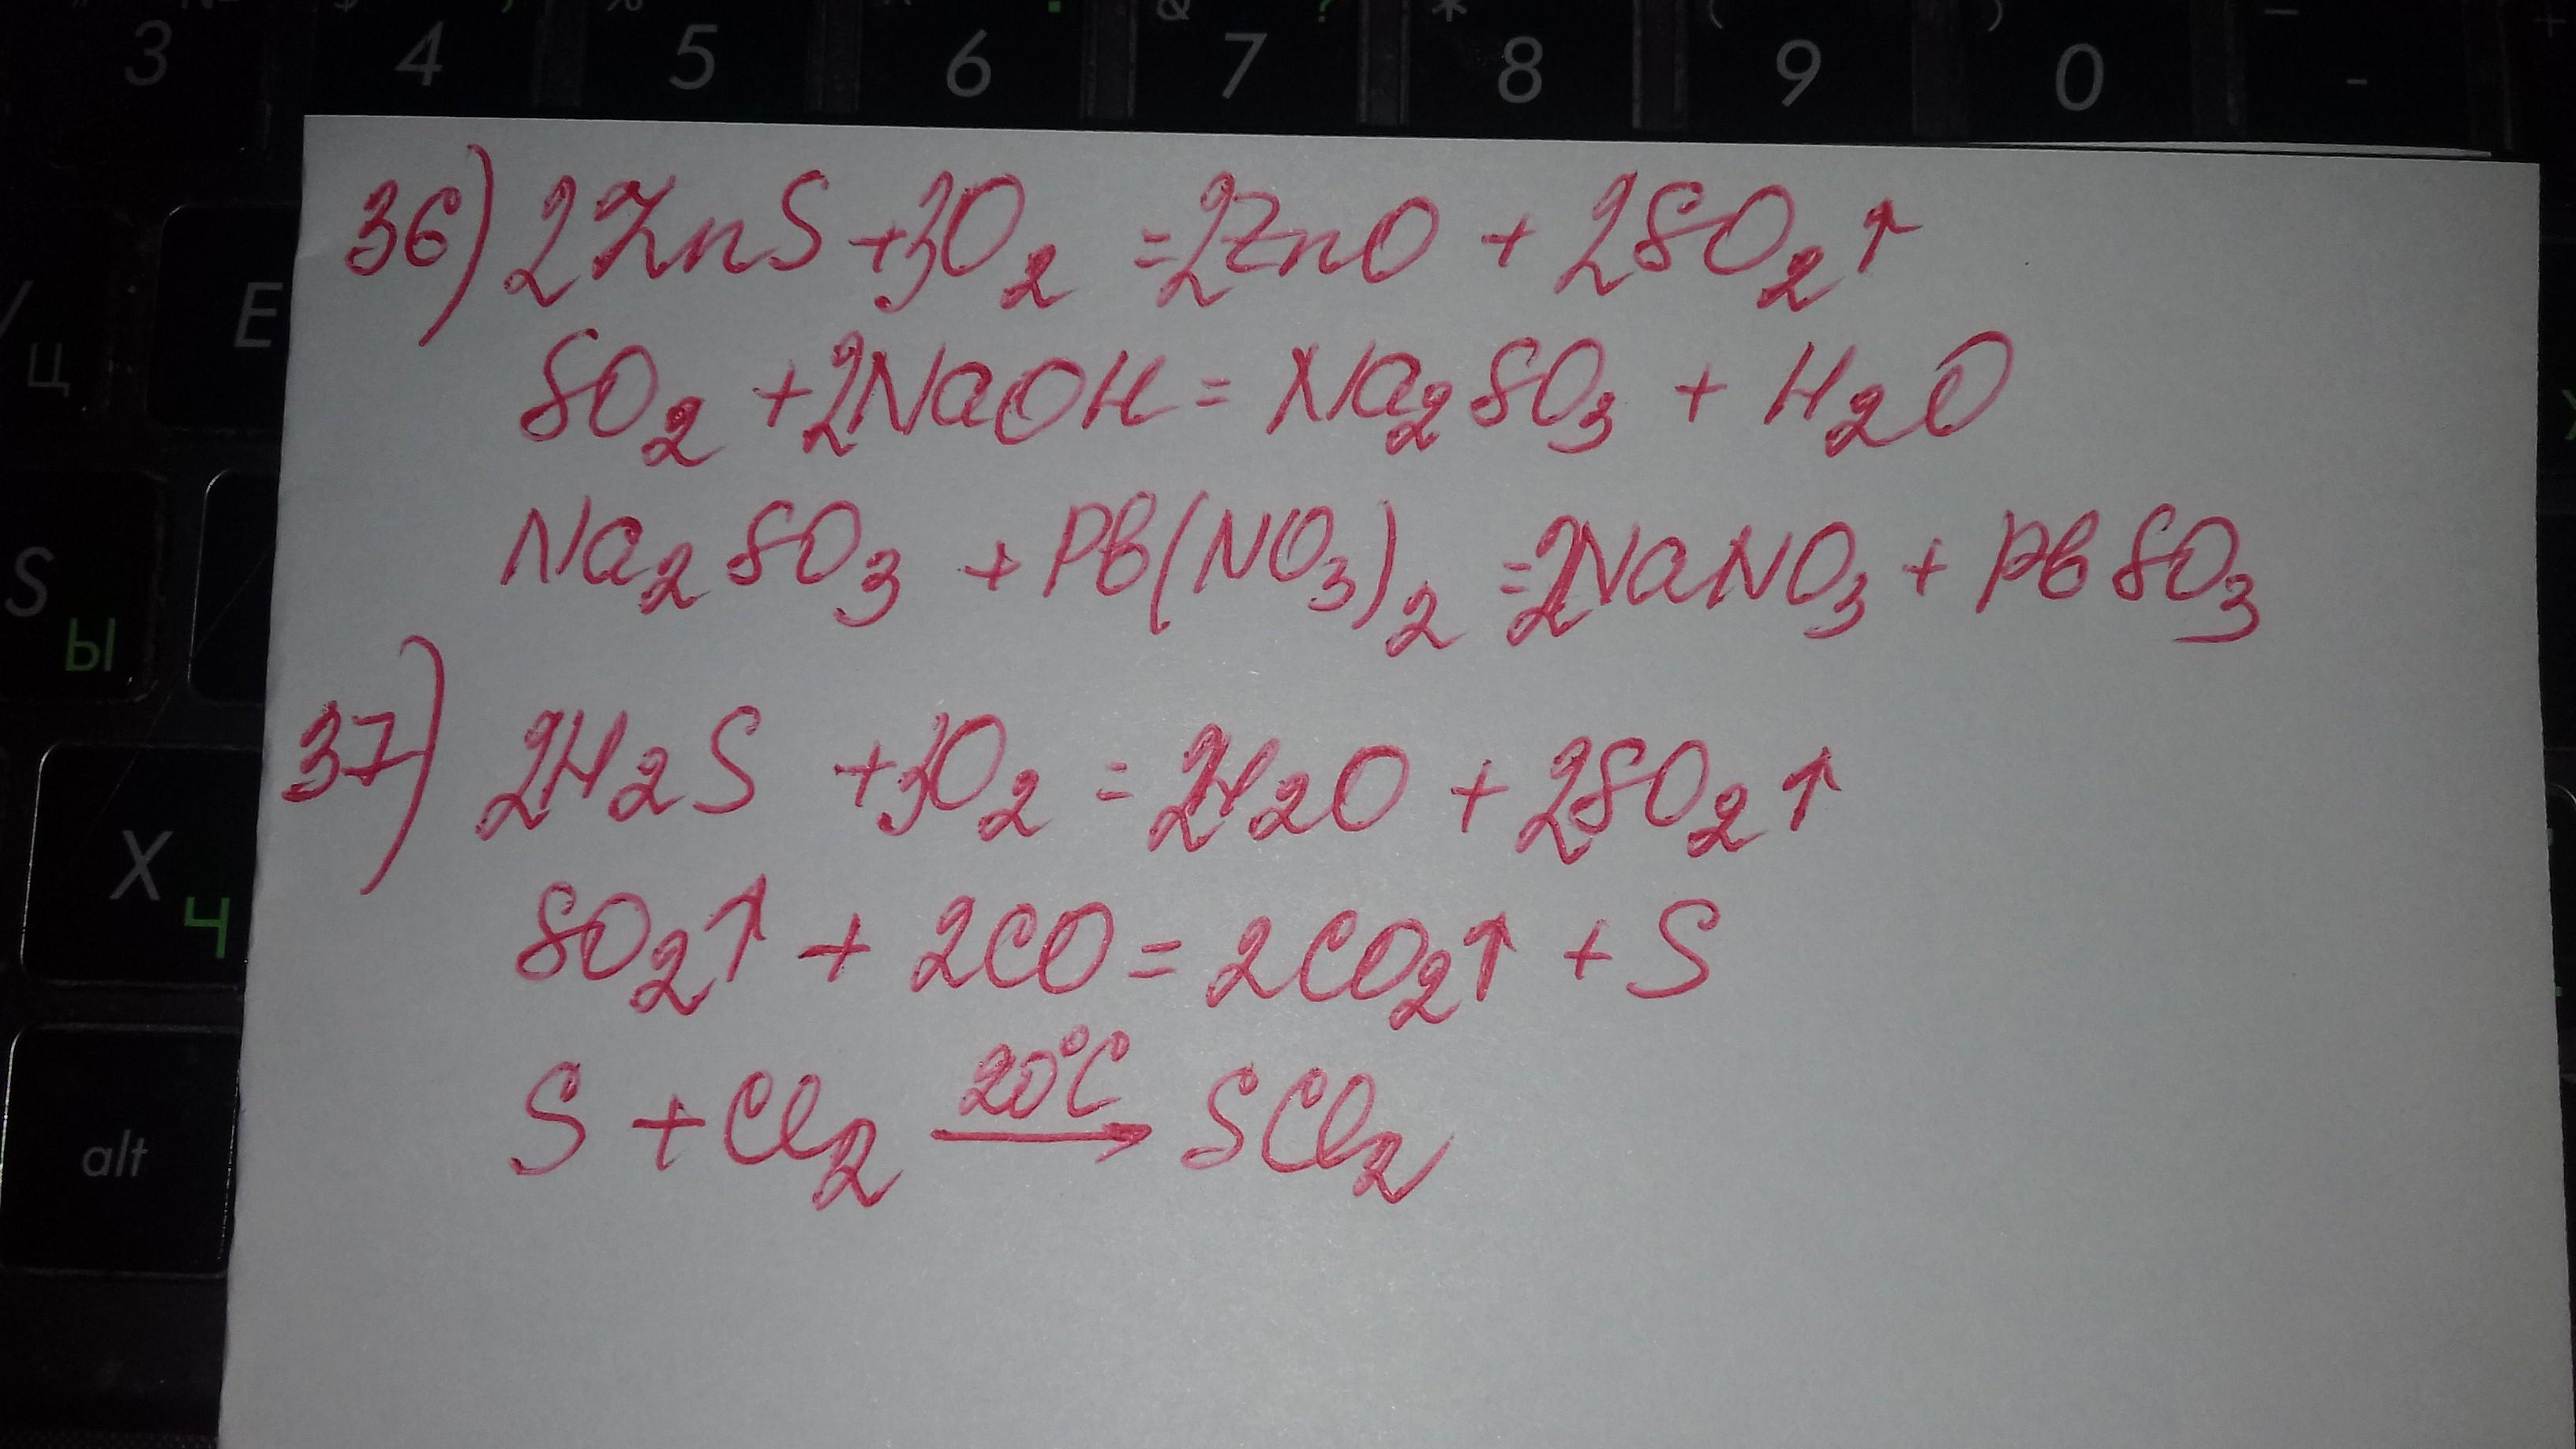 3 4 5 6 7 8 9 0 -
Ц E
S Ы
X Ч
alt
36) 2ZnS + 3O₂ = 2ZnO + 2SO₂↑
SO₂ + 2NaOH = Na₂SO₃ + H₂O
Na₂SO₃ + Pb(NO₃)₂ = 2NaNO₃ + PbSO₃
37) 2H₂S + 3O₂ = 2H₂O + 2SO₂↑
SO₂↑ + 2CO = 2CO₂↑ + S
S + Cl₂ 20°C→ SCl₂